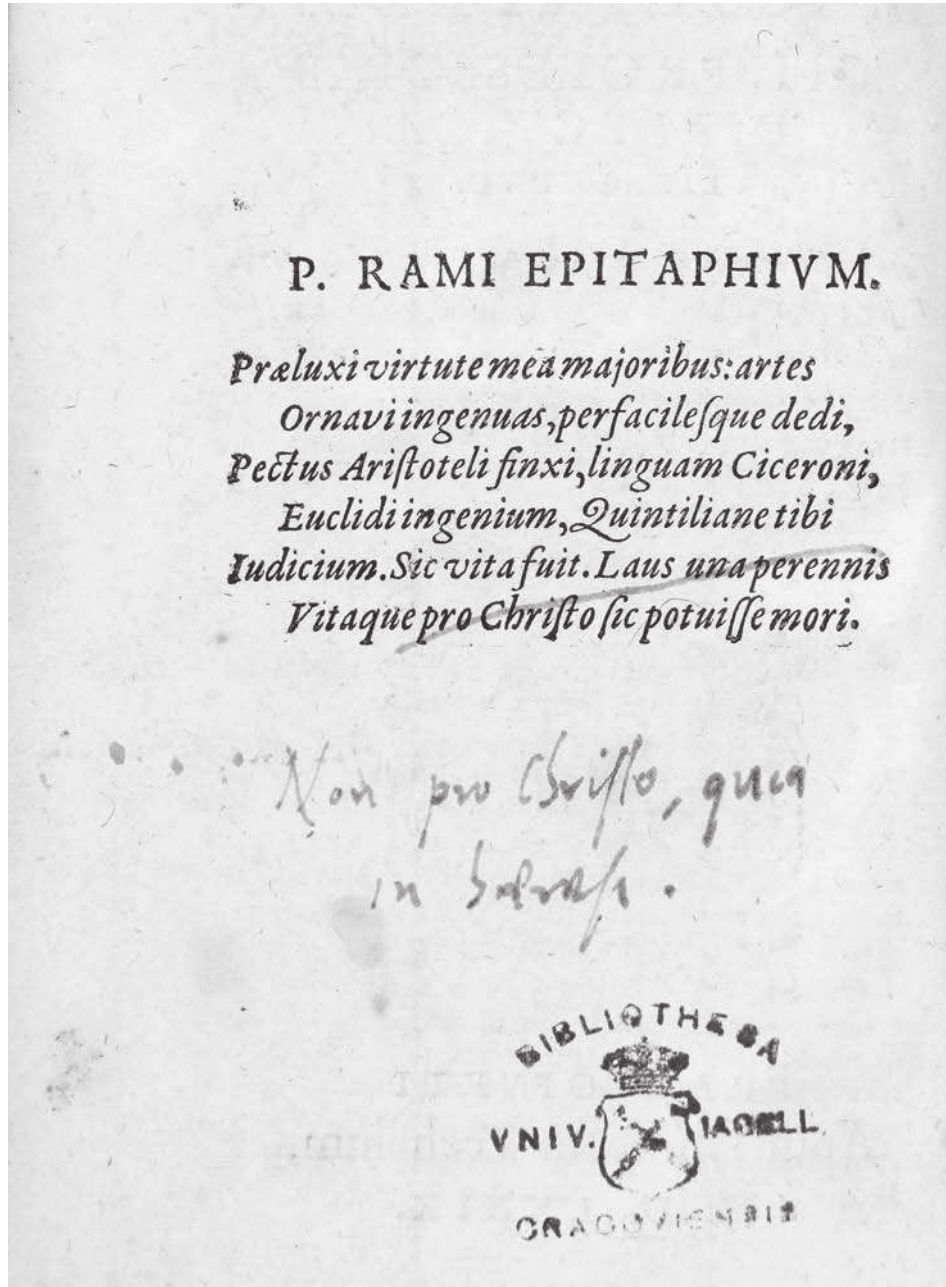 P. RAMI EPITAPHIVM.
Præluxi virtute meâ majoribus: artes
Ornavi ingenuas, perfacileſque dedi,
Pectus Ariſtoteli finxi, linguam Ciceroni,
Euclidi ingenium, Quintiliane tibi
Iudicium. Sic vita fuit. Laus una perennis
Vitaque pro Chriſto ſic potuiſſe mori.
Non pro Chriſto, quia
in hæreſi.
BIBLIOTHECA
VNIV. IAGELL.
CRACOVIENSIS